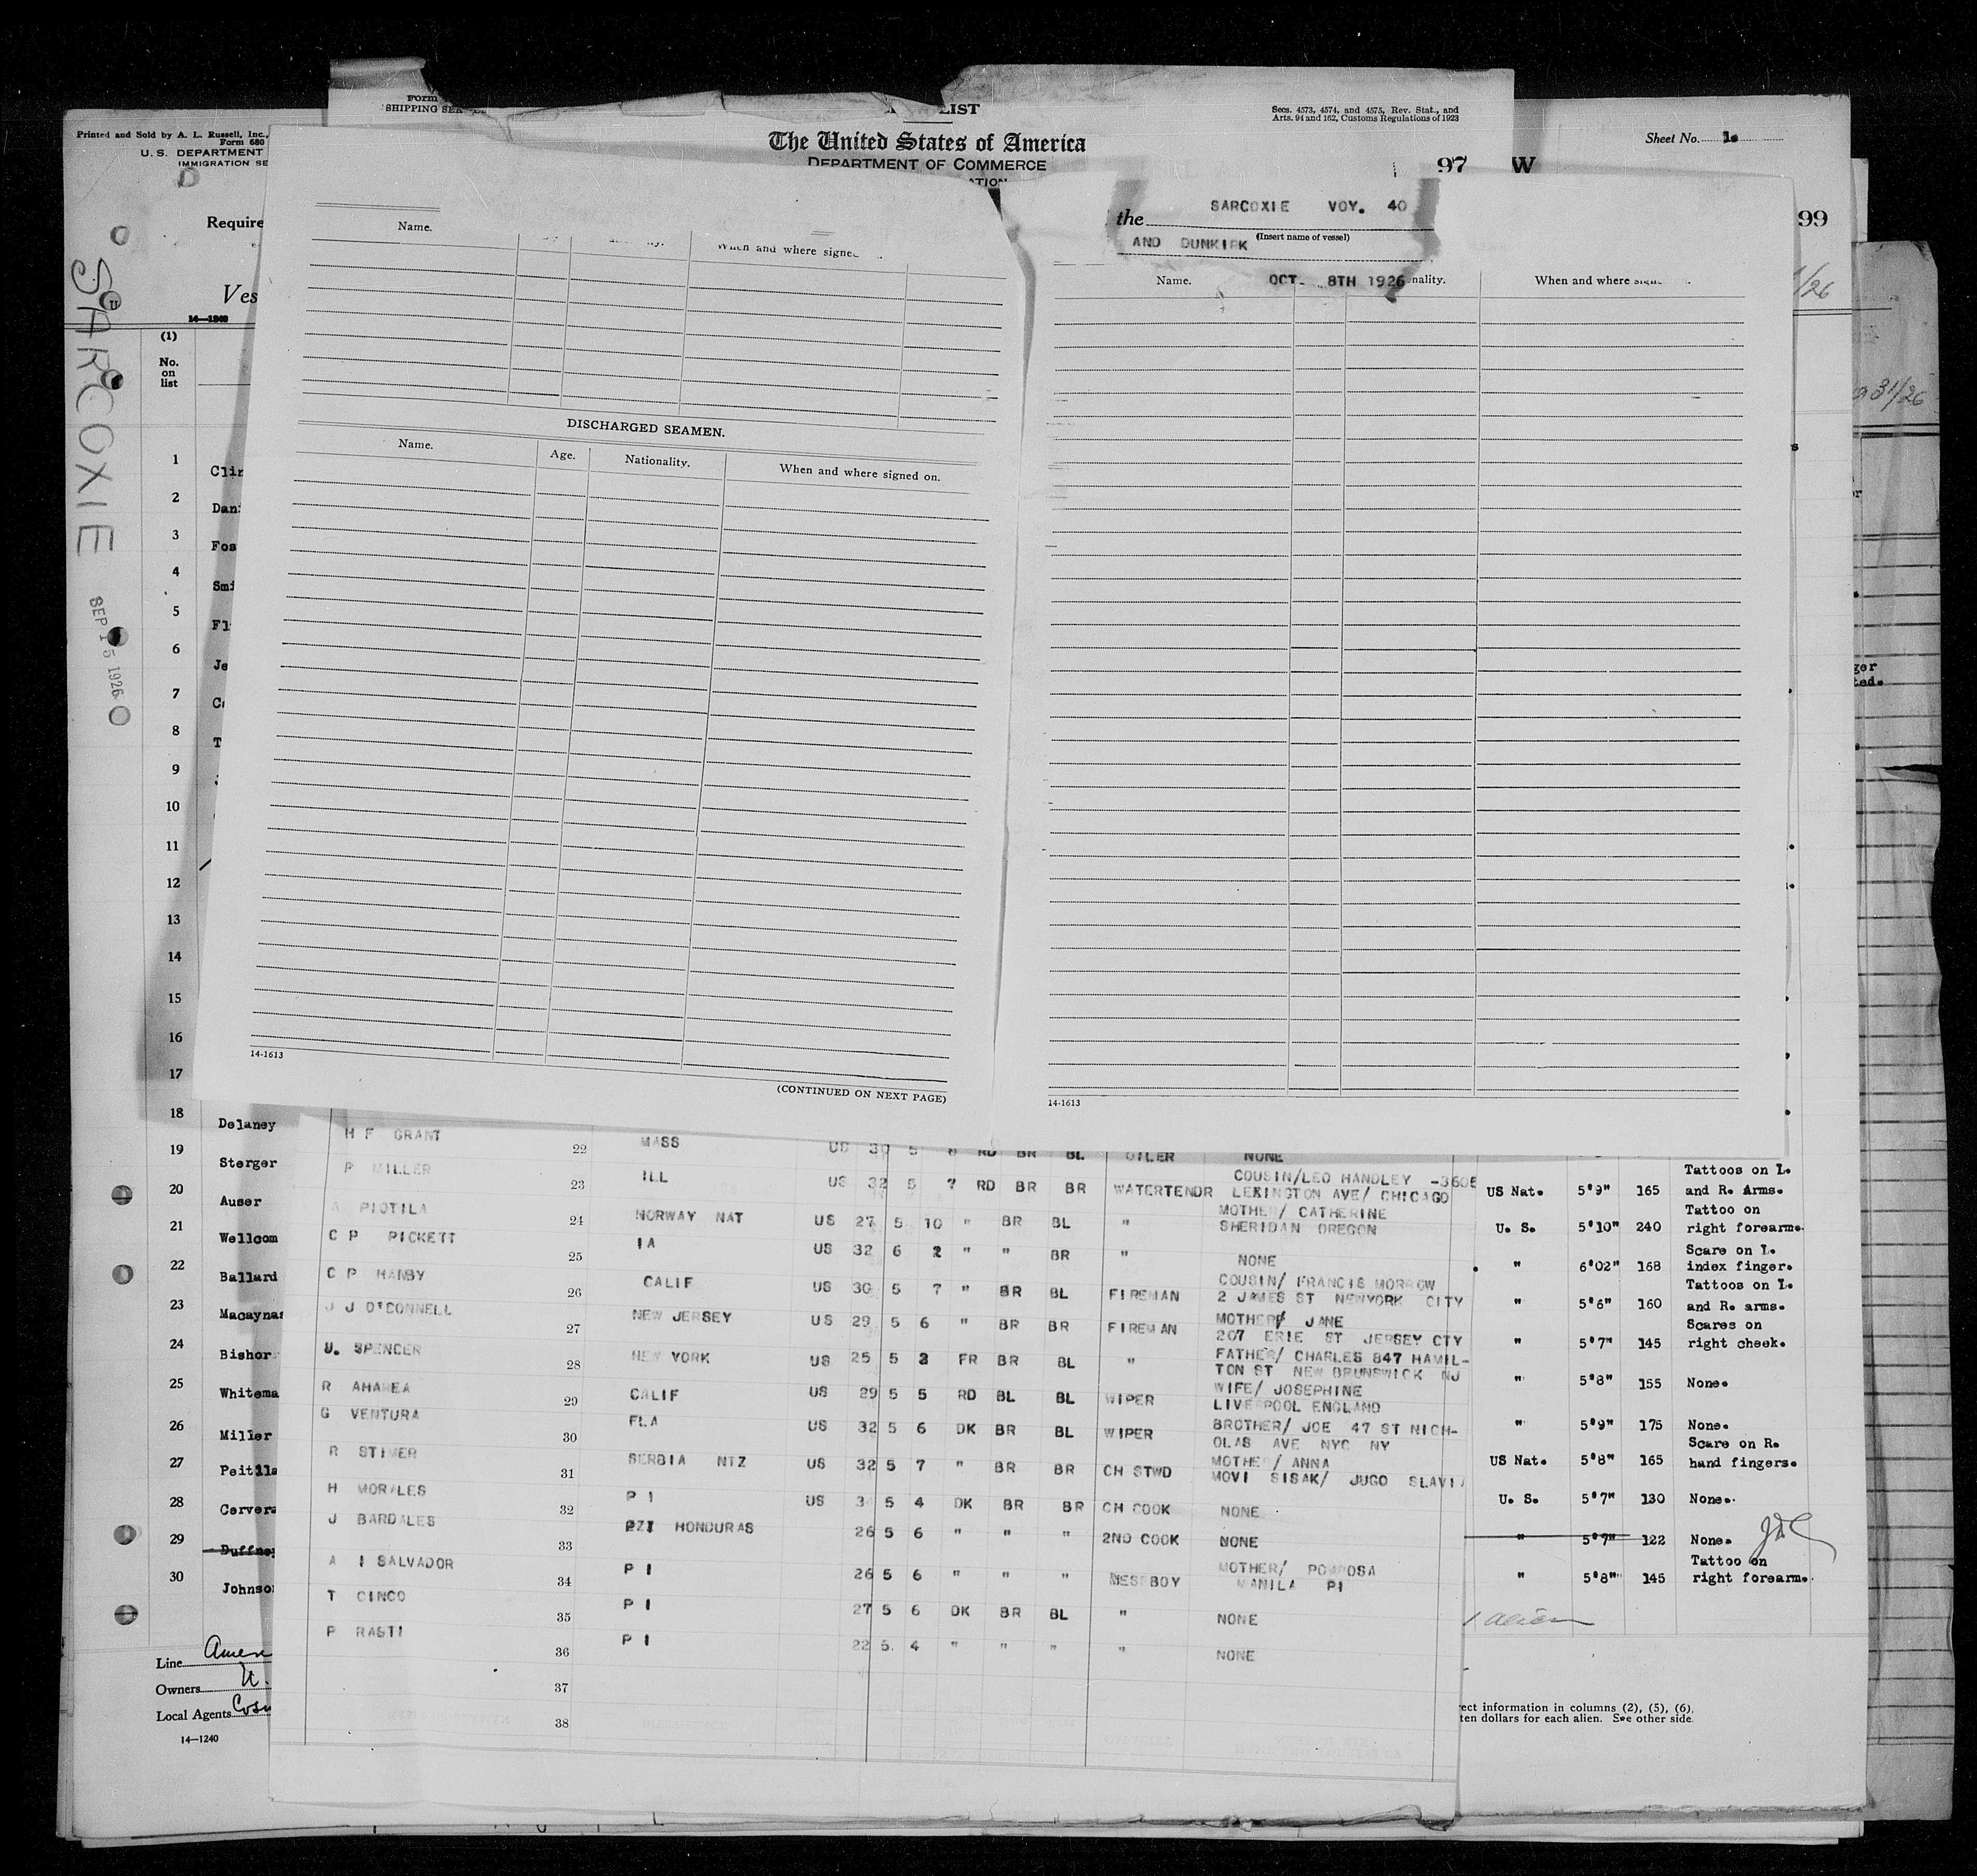 SHIPPING SER
LIST
Secs. 4573, 4574, and 4575, Rev. Stat., and
Arts. 94 and 162, Customs Regulations of 1923
The United States of America
DEPARTMENT OF COMMERCE
Printed and Sold by A. L. Russell, Inc.,
Form 680
U. S. DEPARTMENT
IMMIGRATION SE
Sheet No. 1.
97 W
99
Require
Ves
14—1240
(1)
No.
on
list
SARCOXIE
SEP 15 1926
the SARCOXIE VOY. 40
(Insert name of vessel)
AND DUNKIRK
OCT. 8TH 1926
Name.
When and where signe
Name. nality. When and where
/26
31/26
DISCHARGED SEAMEN.
Name. Age. Nationality. When and where signed on.
14-1613
(CONTINUED ON NEXT PAGE)
14-1613
1 Clin
2 Dan
3 Fos
4 Smi
5 Fl
6 Je
7
8 T
9
10
11
12
13
14
15
16
17
18 Delaney
19 Sterger
20 Auser
21 Wellcom
22 Ballard
23 Macaynas
24 Bishor
25 Whitema
26 Miller
27 Peitila
28 Cervera
29 Duffney
30 Johnson
H F GRANT 22 MASS US 30 5 RD BR BL OILER NONE
P MILLER 23 ILL US 32 5 7 RD BR BR WATERTENDR COUSIN/LEO HANDLEY -3605
LEXINGTON AVE/ CHICAGO
PIOTILA 24 NORWAY NAT US 27 5 10 " BR BL " MOTHER/ CATHERINE
SHERIDAN OREGON
C P PICKETT 25 IA US 32 6 2 " " BR " NONE
C P HANBY 26 CALIF US 30 5 7 " BR BL FIREMAN COUSIN/ FRANCIS MORROW
2 JAMES ST NEWYORK CITY
J J O'CONNELL 27 NEW JERSEY US 29 5 6 " BR BR FIREMAN MOTHER/ JANE
207 ERIE ST JERSEY CTY
U. SPENCER 28 NEW YORK US 25 5 2 FR BR BL " FATHER/ CHARLES 847 HAMIL-
TON ST NEW BRUNSWICK NJ
R AHAREA 29 CALIF US 29 5 5 RD BL BL WIPER WIFE/ JOSEPHINE
LIVERPOOL ENGLAND
G VENTURA 30 FLA US 32 5 6 DK BR BL WIPER BROTHER/ JOE 47 ST NICH-
OLAS AVE NYC NY
R STIVER 31 SERBIA NTZ US 32 5 7 " BR BR CH STWD MOTHE / ANNA
MOVI SISAK/ JUGO SLAVI
H MORALES 32 P I US 3 5 4 DK BR BR CH COOK NONE
J BARDALES 33 HONDURAS 26 5 6 " " " 2ND COOK NONE
A I SALVADOR 34 P I 26 5 6 " " " MESSBOY MOTHER/ POMPOSA
MANILA PI
T CINCO 35 P I 27 5 6 DK BR BL " NONE
P RASTI 36 P I 22 5. 4 " " " " NONE
37
38
US Nat. 5'9" 165 Tattoos on L.
and R. Arms.
U. S. 5'10" 240 Tattoo on
right forearm.
" 6'02" 168 Scare on L.
index finger.
" 5'6" 160 Tattoos on L.
and R. arms.
" 5'7" 145 Scares on
right cheek.
" 5'8" 155 None.
" 5'9" 175 None.
US Nat. 5'8" 165 Scare on R.
hand fingers.
U. S. 5'7" 130 None.
" 5'7" 122 None.
" 5'8" 145 Tattoo on
right forearm.
1 alien
Line
Owners
Local Agents
14—1240
rect information in columns (2), (5), (6),
ten dollars for each alien. See other side.